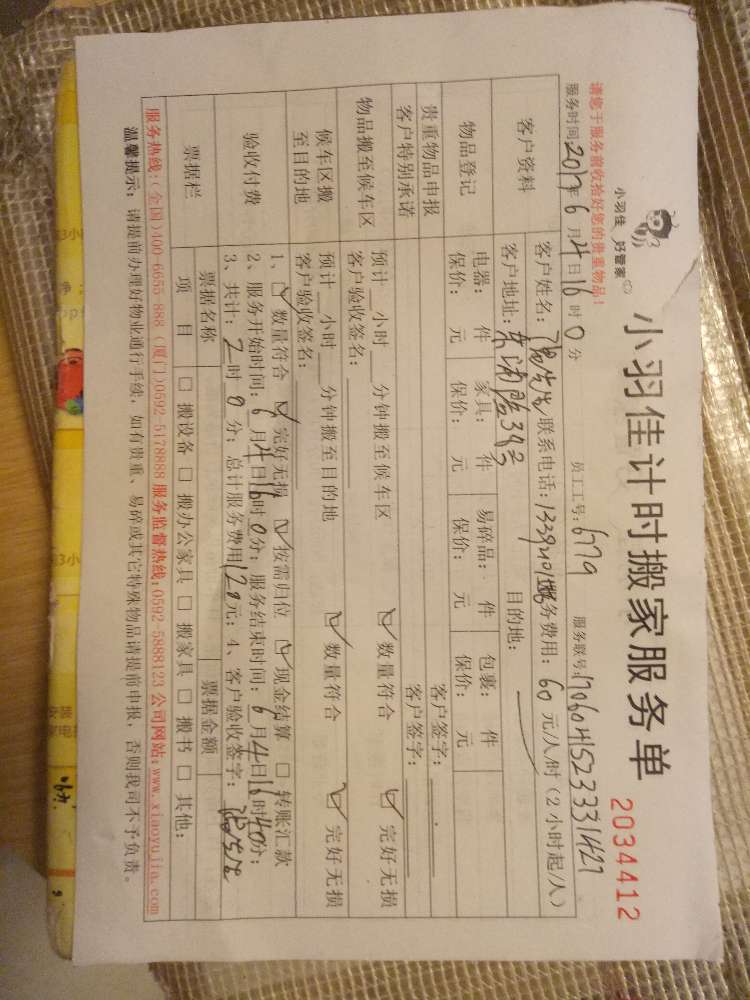 请您于服务前收拾好您的贵重物品！
小羽佳 好管家
小羽佳计时搬家服务单
2034412
服务时间：2017年6月4日16时0分 员工工号：6779 服务联号：
客户资料
客户姓名： 先生 联系电话： 服务费用：60元/人/时（2小时起/人）
客户地址： 目的地：
物品登记
电器： 件 家具： 件 易碎品： 件 包裹： 件
保价： 元 保价： 元 保价： 元 保价： 元
贵重物品申报 客户签字：
客户特别承诺 客户签字：
物品搬至候车区
预计 小时 分钟搬至候车区 ☑ 数量符合 ☑ 完好无损
客户验收签名：
候车区搬至目的地
预计 小时 分钟搬至目的地 ☑ 数量符合 ☑ 完好无损
客户验收签名：
验收付费
1、☑ 数量符合 ☑ 完好无损 ☑ 按需归位 ☑ 现金结算 □ 转账汇款
2、服务开始时间：6月4日16时0分；服务结束时间：6月4日16时40分；
3、共计：2时0分；总计服务费用120元；4、客户验收签字：
票据栏
票据名称 票据金额
项目 □ 搬设备 □ 搬办公家具 □ 搬家具 □ 搬书 □ 其他：
服务热线：(全国)400-6655-888 (厦门)0592-5178888 服务监督热线：0592-5888123 公司网站：www.xiaoyujia.com
温馨提示：请提前办理好物业通行手续，如有贵重、易碎或其它特殊物品请提前申报，否则我司不予负责。